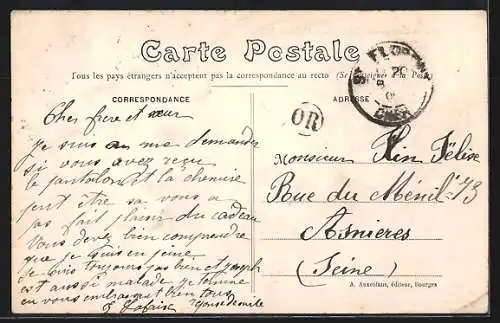 Carte Postale
Tous les pays étrangers n'acceptent pas la correspondance au recto (Se renseigner à la Poste)
CORRESPONDANCE
ADRESSE
St FLORENT
CHER
OR
Cher frere et sœur
je suis a me demander
si vous avez reçu
le pantalon et la chemise
peut etre sa vous a
pas fait plaisir du cadeau
Vous devez bien comprendre
que je suis en peine
je vois toujours pas bien et
et aussi malade je termine
en vous embrassant bien tous
Monsieur Félise
Rue du Ménil 73
Asnieres
(Seine)
A. Auxenfans, éditeur, Bourges